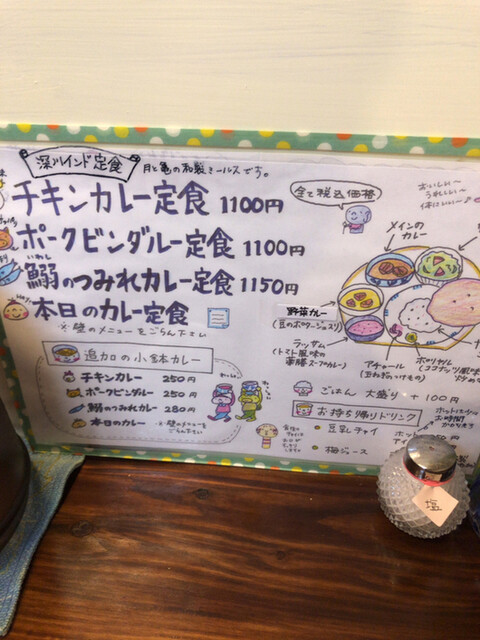 深川インド定食
月と亀の和製ミールスです。
チキンカレー定食 1100円
ポークビンダルー定食 1100円
いわし
鰯のつみれカレー定食 1150円
本日のカレー定食
※壁のメニューをごらん下さい
追加の小鉢カレー
チキンカレー 250円
ポークビンダルー 250円
鰯のつみれカレー 280円
本日のカレー ※壁のメニューをごらん下さい
全て税込価格
おいしい〜
うれしい〜
体にいい〜♪
メインの
カレー
野菜カレー
(豆のポタージュスリ)
ラッサム
(トマト風味の
薬膳スープカレー)
アチャール
(玉ねぎ漬けもの)
ポリヤル
(ココナッツ風味
ごはん 大盛り + 100円
お持ち帰りドリンク
豆乳チャイ
梅ジュース
塩